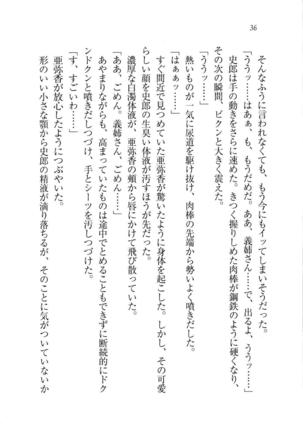 36
そんなふうに言われなくても、もう今にもイッてしまいそうだった。
「ううッ……はぁぁ、も、もうだめだ。ああ、義姉さん……で、出るよ、ううッ……」
史郎は手の動きをさらに速めた。きつく握りしめた肉棒が鋼鉄のように硬くなり、
その次の瞬間、ビクンと大きく震えた。
「ううッ……」
「はぁぁッ……」
熱いものが一気に尿道を駆け抜け、肉棒の先端から勢いよく噴きだした。
すぐ間近で見つめていた亜弥香が驚いたように身体を起こした。しかし、その可愛
らしい顔を史郎の生臭い体液が汚すほうが先だった。
濃厚な白濁体液が、亜弥香の頬から唇にかけて飛び散っていた。
「ああ、ごめん。義姉さん、ごめん……」
あやまりながらも、高まっていたものは途中でとめることもできずに断続的にドク
ンドクンと噴きだしつづけ、手とシーツを汚しつづけた。
「す、すごいわ……」
亜弥香が放心したようにつぶやいた。
形のいい小さな顎から史郎の精液が滴り落ちるが、そのことに気がついていないか